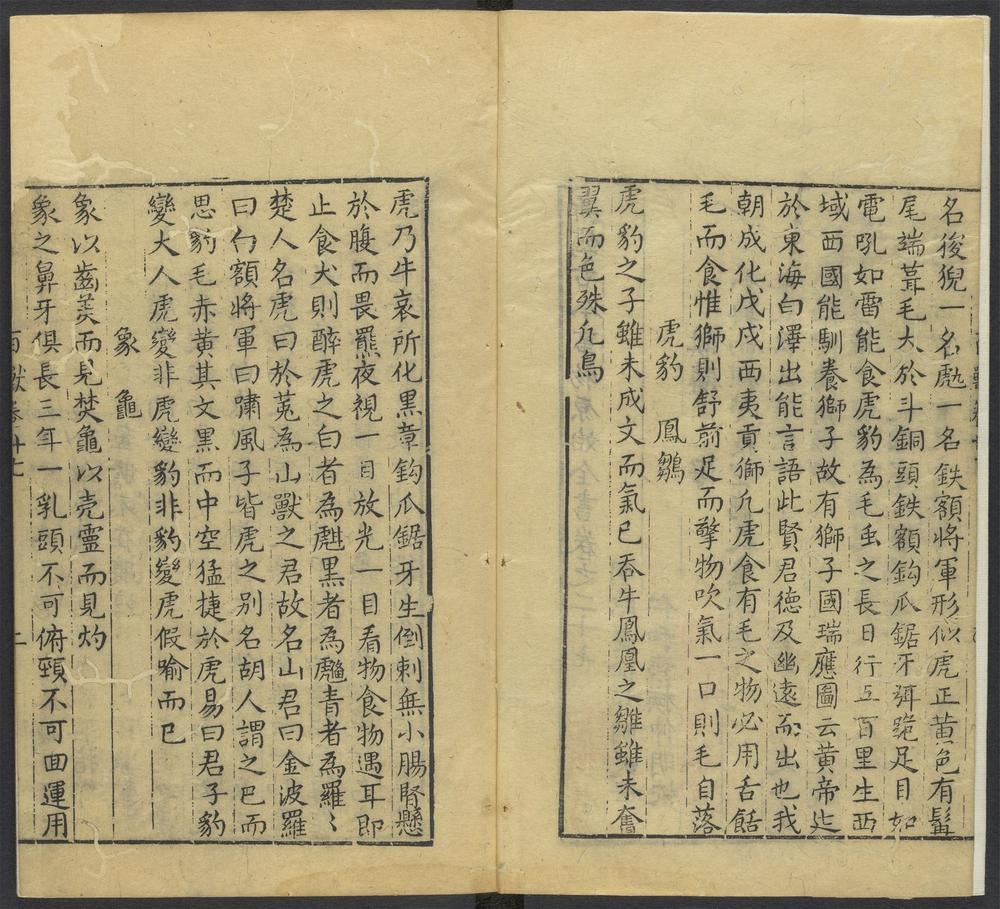 名狻猊一名虓一名鉄額將軍形似虎正黄色有髯
尾端茸毛大於斗銅頭鉄額鈎爪鋸牙弭跪足目如
電吼如雷能食虎豹為毛虫之長日行五百里生西
域西國能馴養獅子故有獅子國瑞應圖云黄帝廵
於東海白澤出能言語此賢君德及幽遠而出也我
朝成化戊戌西夷貢獅凢虎食有毛之物必用舌餂
毛而食惟獅則舒前足而擎物吹氣一口則毛自落
虎豹 鳳鶵
虎豹之子雖未成文而氣已吞牛鳳凰之雛雖未奮
翼而色殊凢鳥
虎乃牛哀所化黒章鈎爪鋸牙生倒刺無小腸腎懸
於腹而畏羆夜視一目放光一目看物食物遇耳即
止食犬則醉虎之白者為甝黒者為虪青者為羅〻
楚人名虎曰於菟為山獸之君故名山君曰金波羅
曰白額將軍曰嘯風子皆虎之别名胡人謂之巴而
思豹毛赤黄其文黒而中空猛捷於虎易曰君子豹
變大人虎變非虎變豹非豹變虎假喻而已
象 龜
象以齒美而見焚龜以壳靈而見灼
象之鼻牙俱長三年一乳頭不可俯頸不可回運用